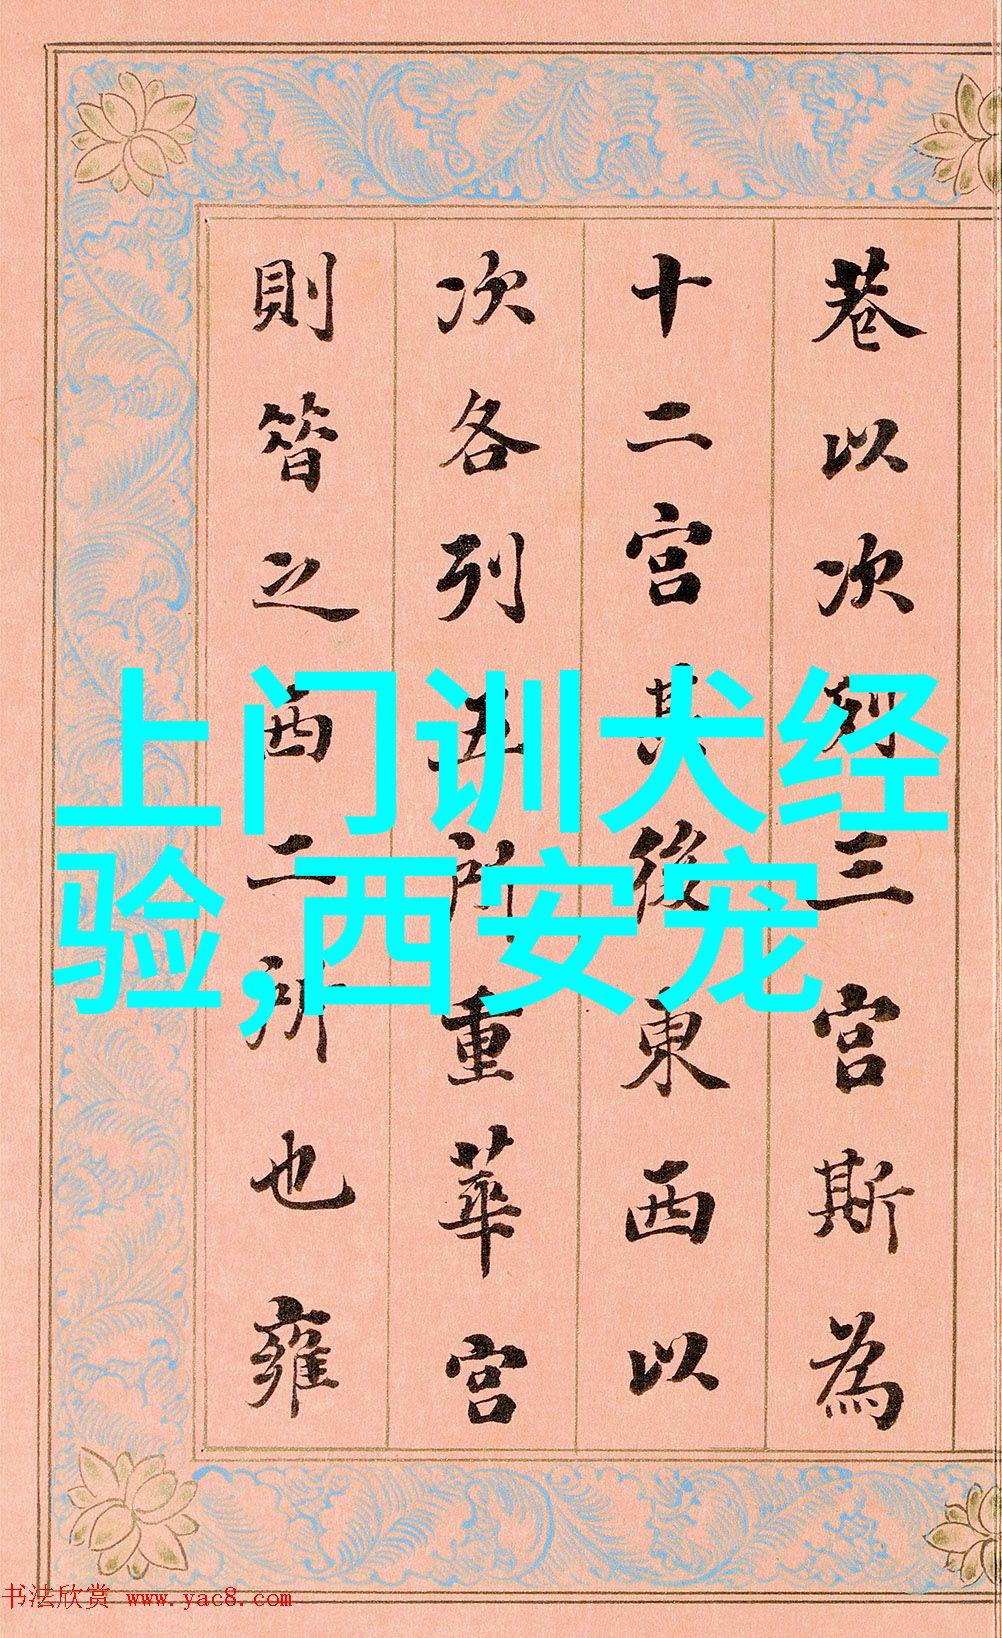 巷以次列三宫斯为
十二宫其後東西以
次各列五所重華宫
則㫺之西二所也雍
上门训犬经
验,西安宠
书法欣赏 www.yac8.com